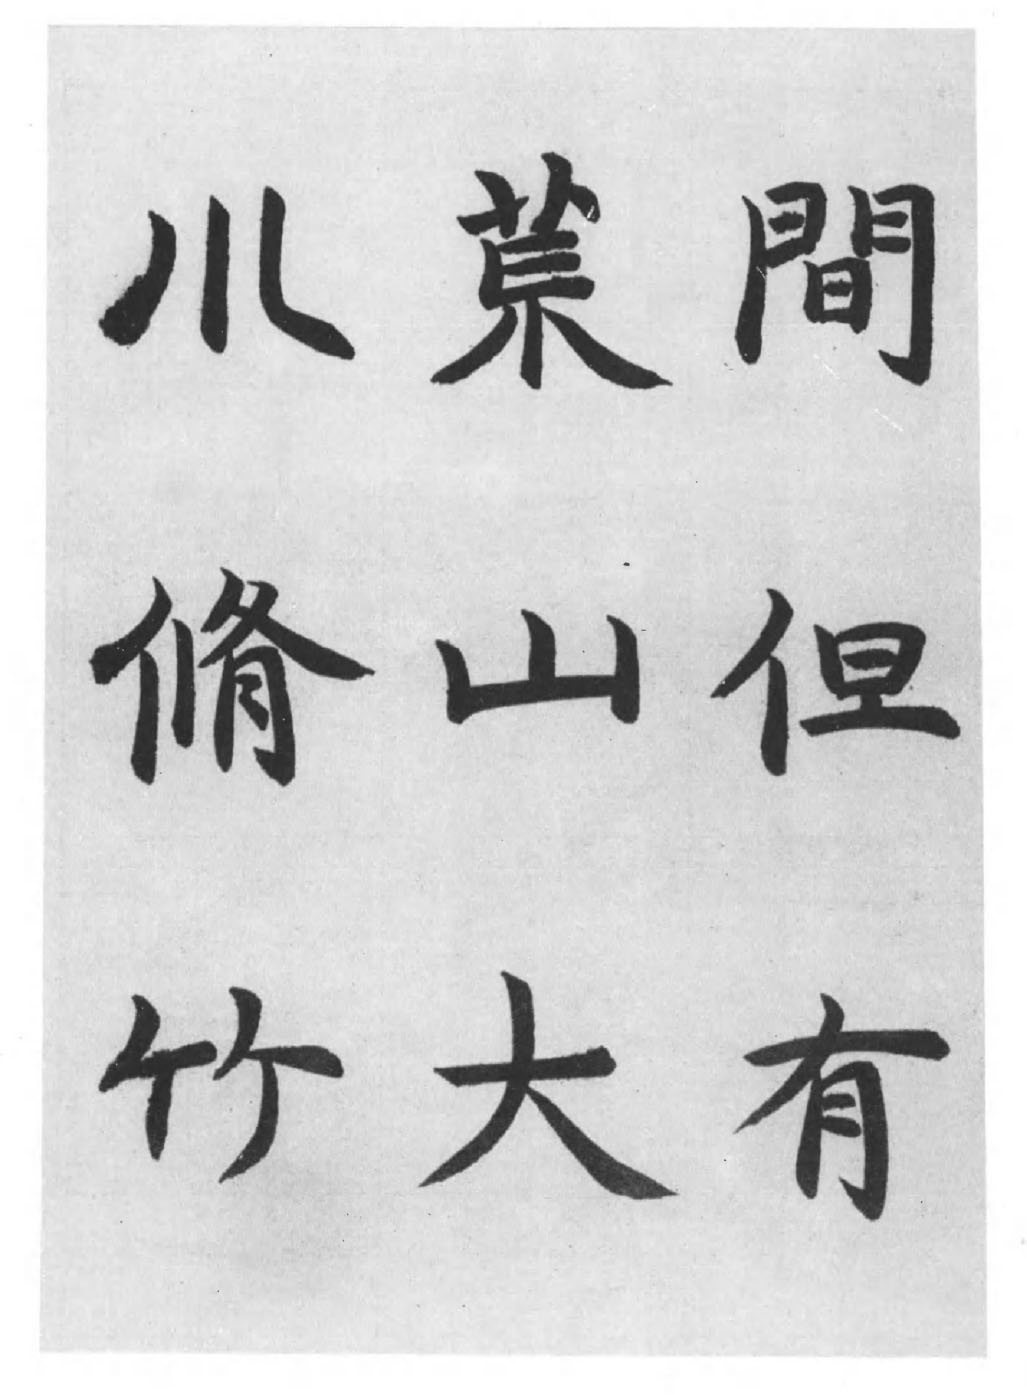 間但有
荒山大
川脩竹